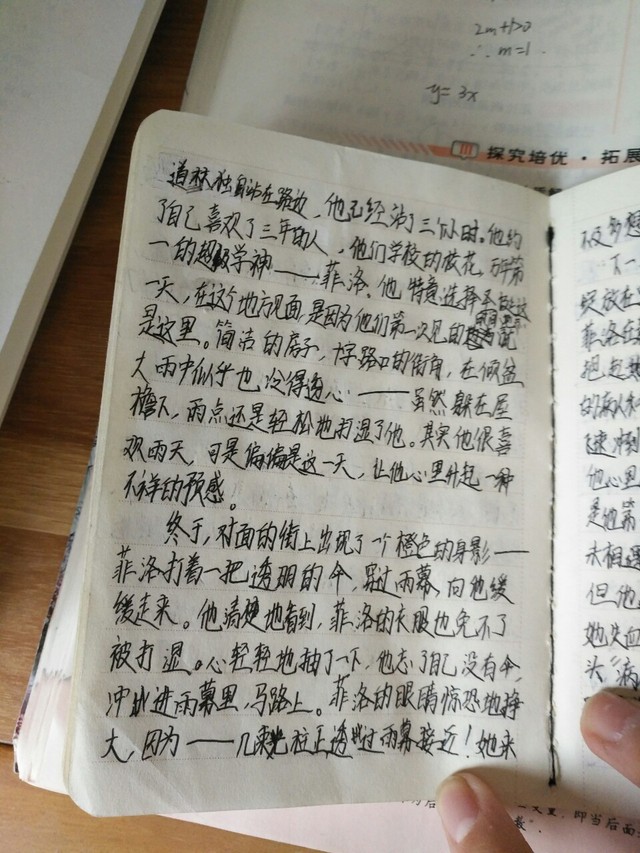 2m+1>0
∴ m=1.
y= 3x
探究培优·拓展
道林独自站在路边，他已经站了三个小时。他约
了自己喜欢了三年的人，他们学校的校花，万年第
一的超级学神——菲洛。他特意选择
天，在这个地方见面，是因为他们第一次见的
是这里。简洁的房子，十字路口的街角，在倾盆
大雨中似乎也冷得透心——虽然躲在屋
檐下，雨点还是轻松地打湿了他。其实他很喜
欢雨天，可是偏偏是这一天，让他心里升起一种
不祥的预感。
终于，对面的街上出现了一个橙色的身影——
菲洛打着一把透明的伞，穿过雨幕向他缓
缓走来。他清楚地看到，菲洛的衣服也免不了
被打湿。心轻轻地抽了一下，他忘了自己没有伞，
冲进雨幕里，马路上。菲洛的眼睛惊恐地睁
大，因为——几束光柱正透过雨幕接近！她来
下一
菲洛在
的病
飞速
他心里
是他第
未相遇
但他
她失血
头"病
，即当后面
数"．